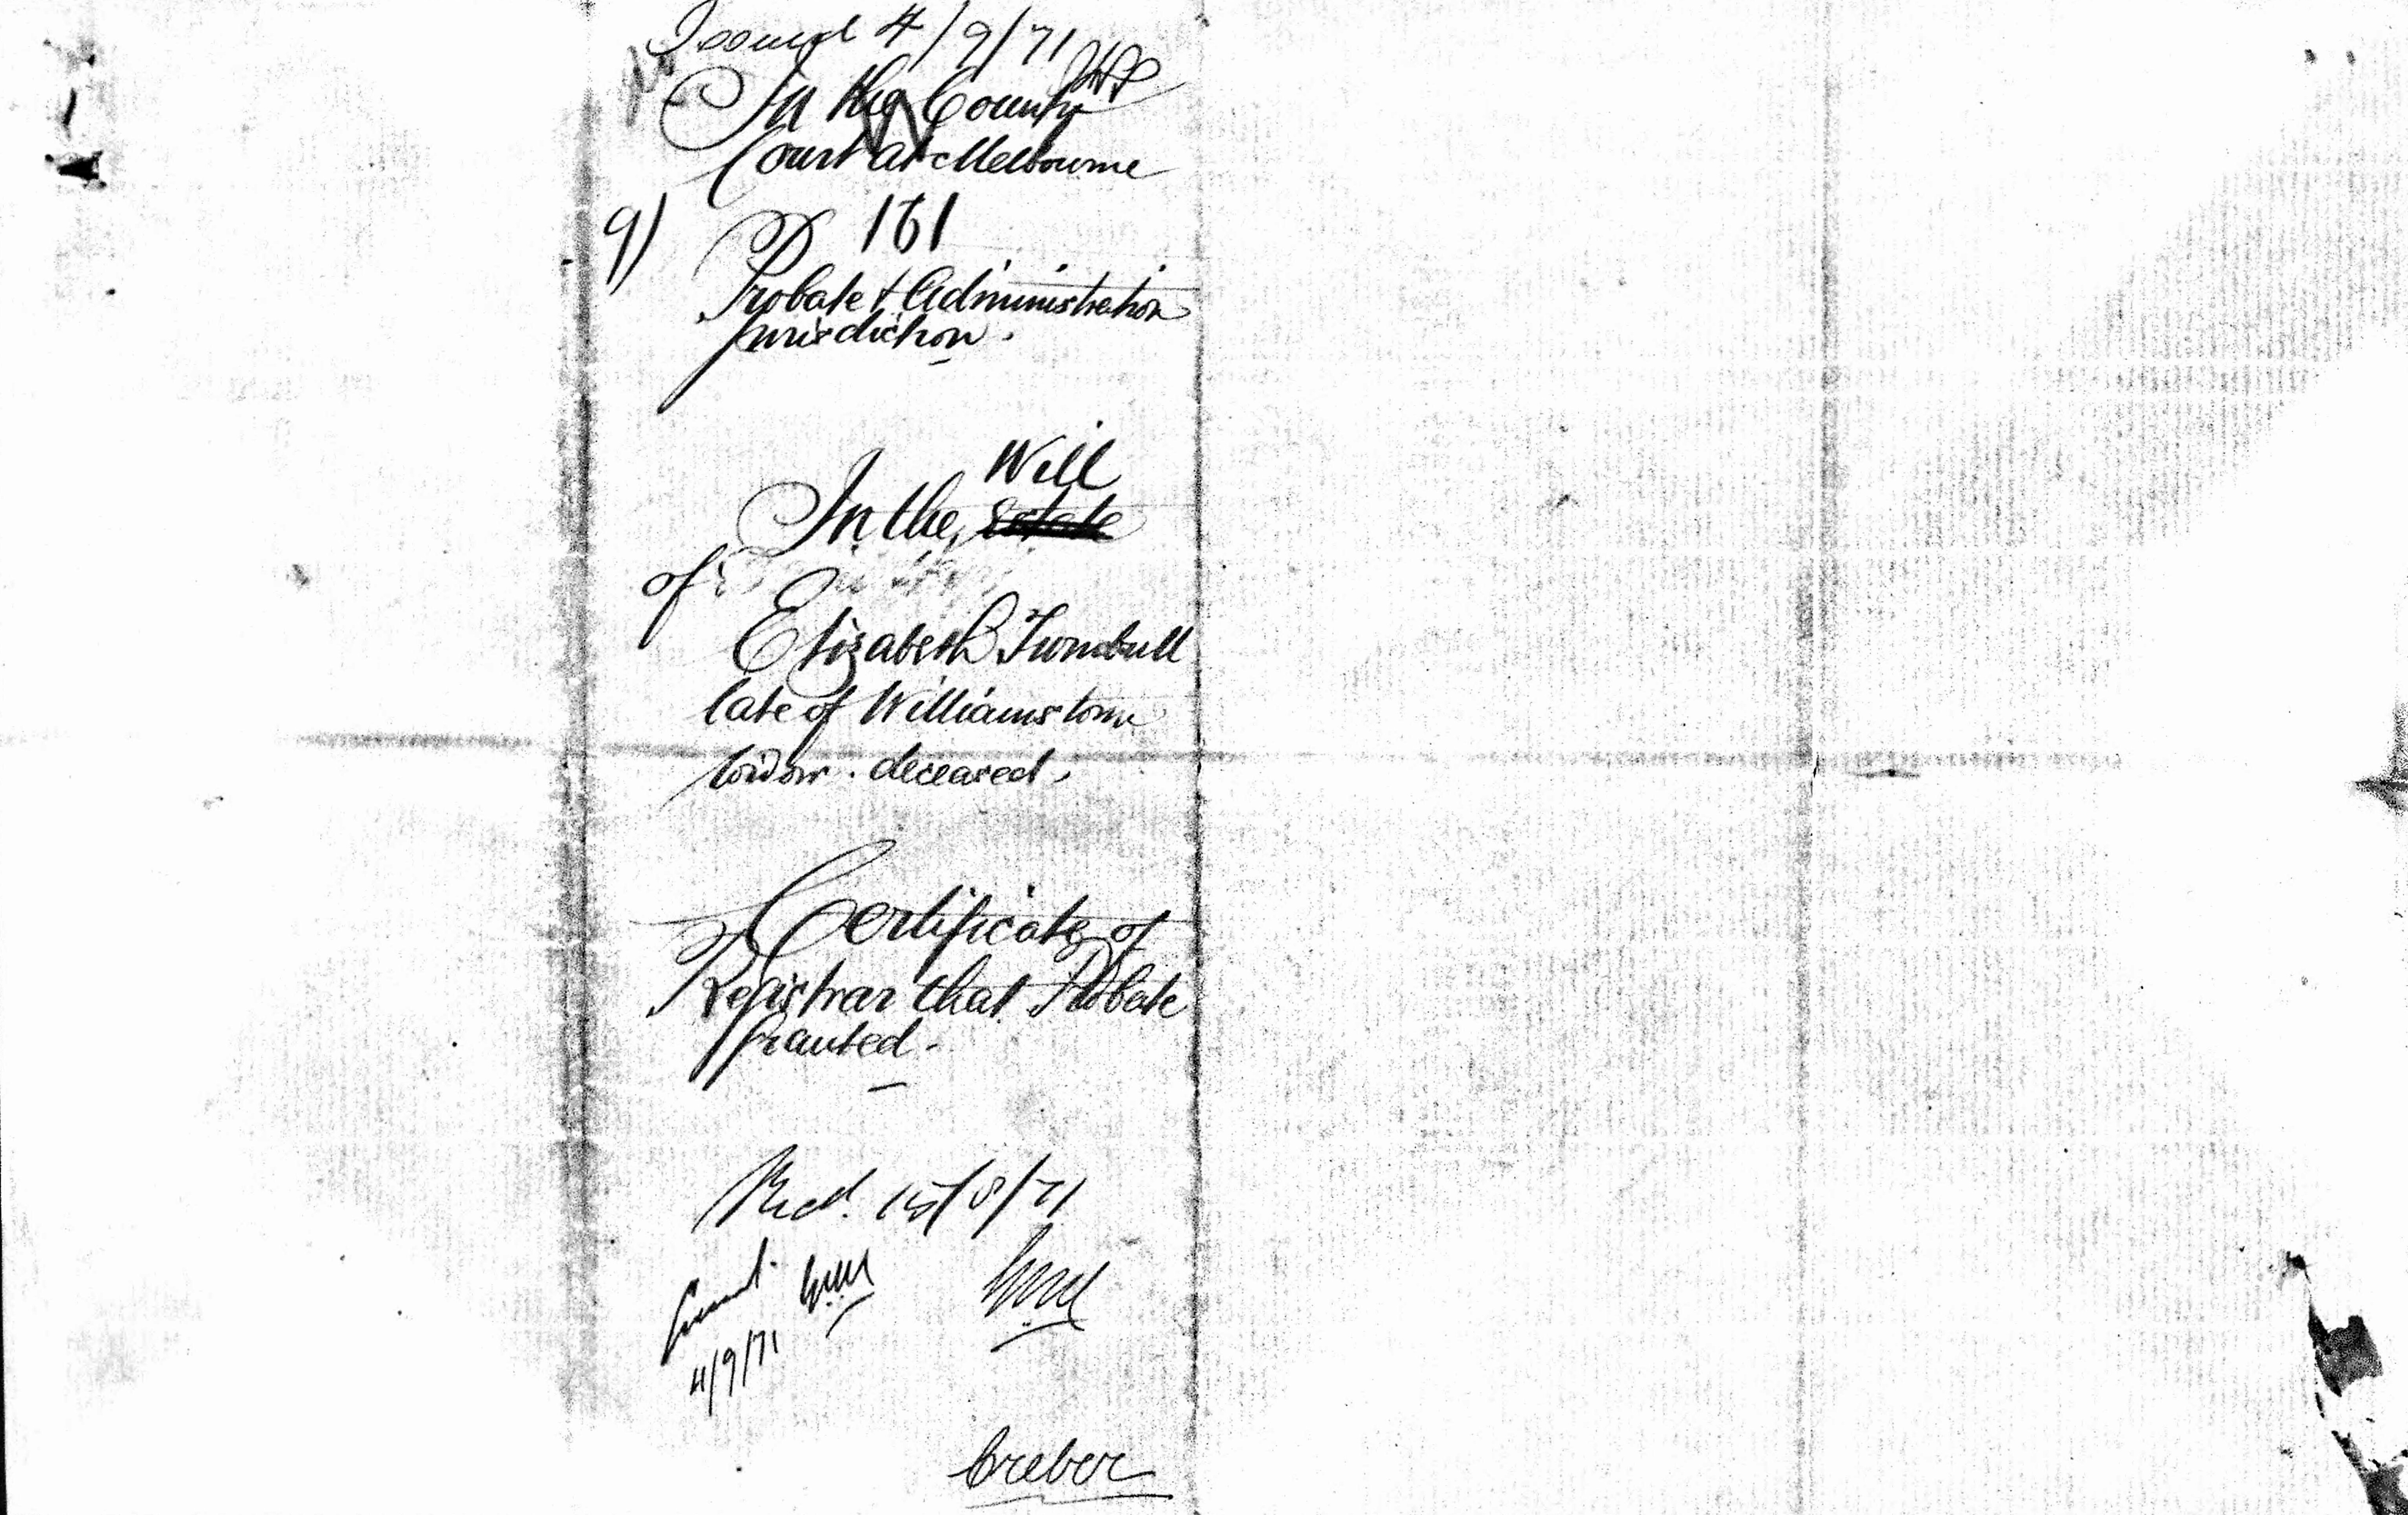 Issued 4/9/71
In the County
Court at Melbourne
9) 161
Probate & Administration
Jurisdiction.
Will
In the estate
of
Elizabeth Turnbull
late of Williamstown
widow. deceased,
Certificate of
Registrar that Probate
Granted.-
Recd. 15/8/71
4/9/71
Creber